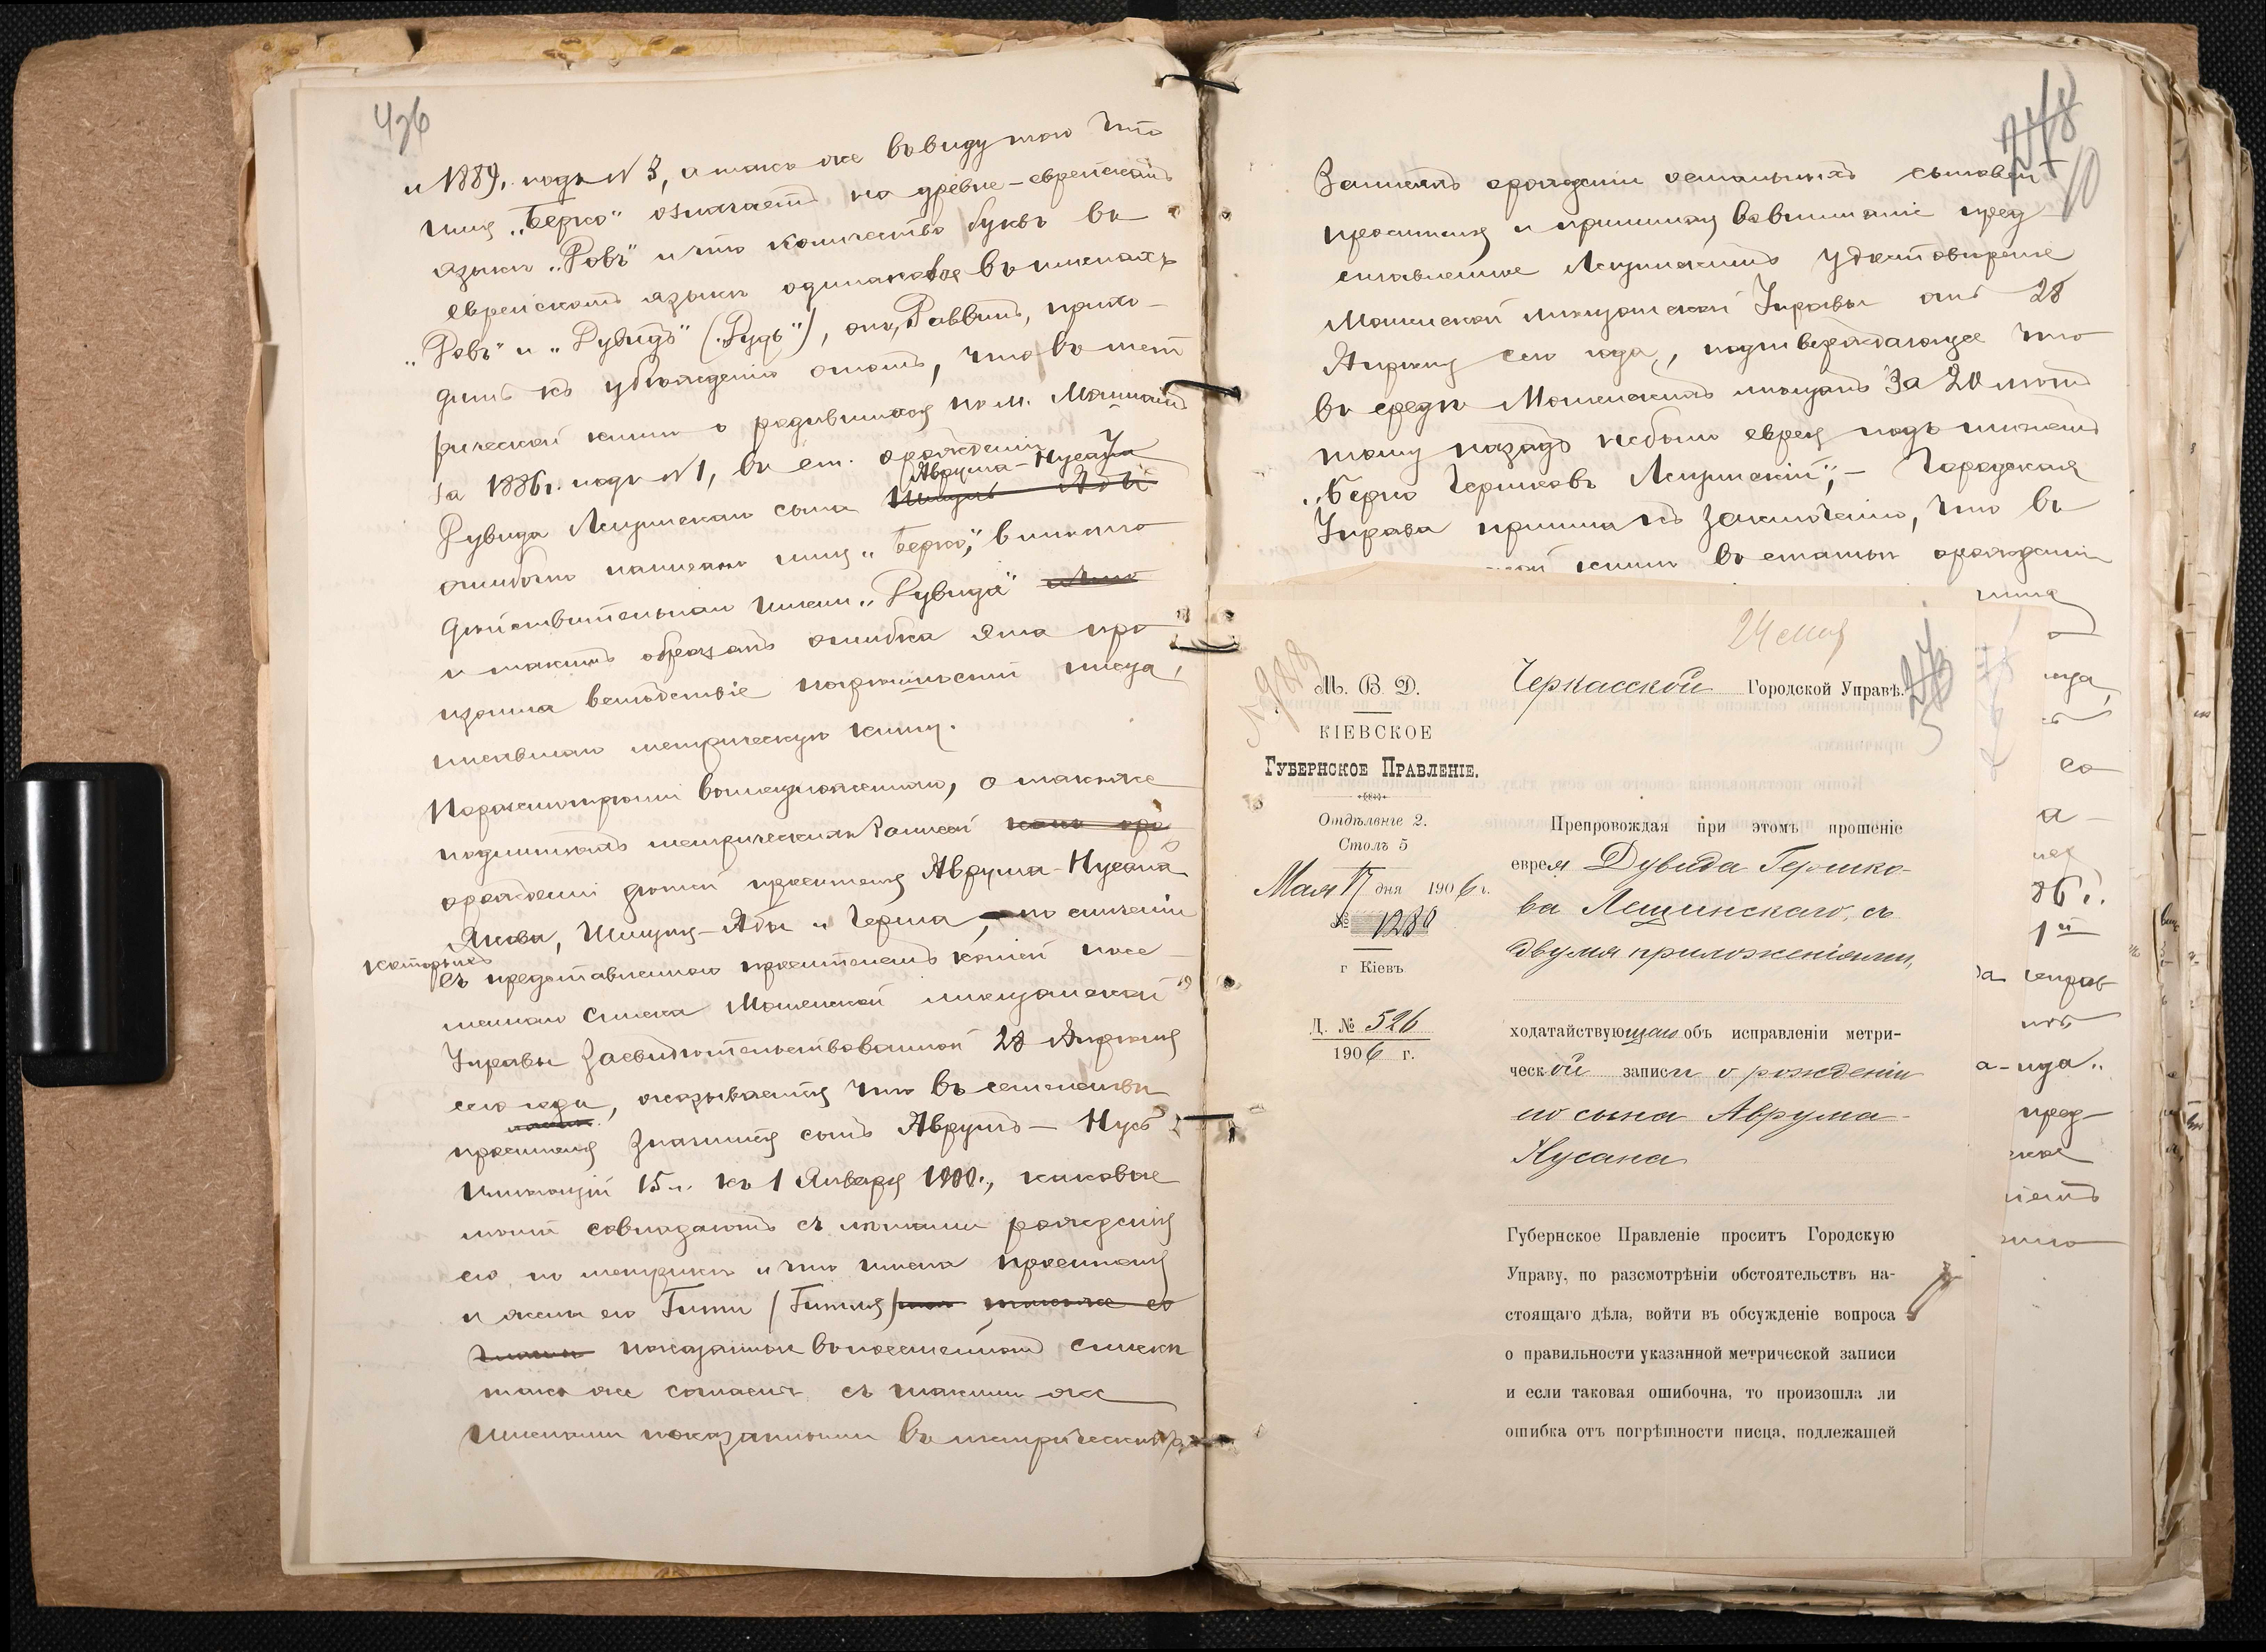 436
и 1889г. подъ № 3, а такъ же въ виду того что
имя „Берко" означаетъ на древне-еврейскомъ
языкѣ „Ровъ" и что количество буквъ въ
еврейскомъ языкѣ одинаковое въ именахъ
„Ровъ" и „Рувидъ" („Рудъ"), онъ, Раввинъ, прихо-
дитъ къ убѣжденію о томъ, что въ мет
рической книгѣ о родившихся по м. Мошнамъ
за 1886г. подъ № 1, въ ст. о рожденіи у
Аврума-Нусана
Рувида Лещинскаго сына
ошибочно написано имя „Берко", вмѣсто
дѣйствительнаго имени „Рувида"
и такимъ образомъ ошибка эта про
изошла вслѣдствіе погрѣшности писца,
писавшаго метрическую книгу.
По разсмотрѣніи вышеизложеннаго, а также
подлинныхъ метрическихъ записей
о рожденіи дѣтей просителя Аврума-Нусана
Якова, Шмуля-Абы и Герша, по сличеніи
которыхъ
съ представленною просителемъ копіей посе
мейнаго списка Мошенской мѣщанской
Управы засвидѣтельствованной 28 Апрѣля
сего года, оказывается что въ семействѣ
просителя значится сынъ Аврумъ - Нусъ
имѣющій 15 л. къ 1 Января 1900г., каковые
лѣта совпадаютъ съ лѣтами рожденія
его по метрикѣ и что имена просителя
и жены его Гити (Гитля)
показанныя въ посемейномъ спискѣ
такъ же согласны съ такими же
именами показанными въ метрическихъ
248
10
записяхъ о рожденіи остальныхъ сыновей
просителя и принимая во вниманіе пред
ставленное Лещинскимъ удостовѣреніе
Мошенской мѣщанской Управы отъ 28
Апрѣля сего года, подтверждающее что
въ средѣ Мошенскихъ мѣщанъ за 20 лѣтъ
тому назадъ не было еврея подъ именемъ
„Берко Гершковъ Лещинскій", - Городская
Управа пришла къ заключенію, что въ
книгѣ въ статьѣ о рожденіи
24 мая
М. В. Д.
Черкасской Городской Управѣ.
КІЕВСКОЕ
ГУБЕРНСКОЕ ПРАВЛЕНІЕ.
Отдѣленіе 2.
Столъ 5
Мая 17 дня 1906 г.
№ 1280
г Кіевъ
Д. № 526
1906 г.
Препровождая при этомъ прошеніе
еврея Дувида Гершко-
ва Лещинскаго, съ
двумя приложеніями,
ходатайствующаго объ исправленіи метри-
ческой записи о рожденіи
его сына Аврума-
Нусана
Губернское Правленіе проситъ Городскую
Управу, по разсмотрѣніи обстоятельствъ на-
стоящаго дѣла, войти въ обсужденіе вопроса
о правильности указанной метрической записи
и если таковая ошибочна, то произошла ли
ошибка отъ погрѣшности писца, подлежащей